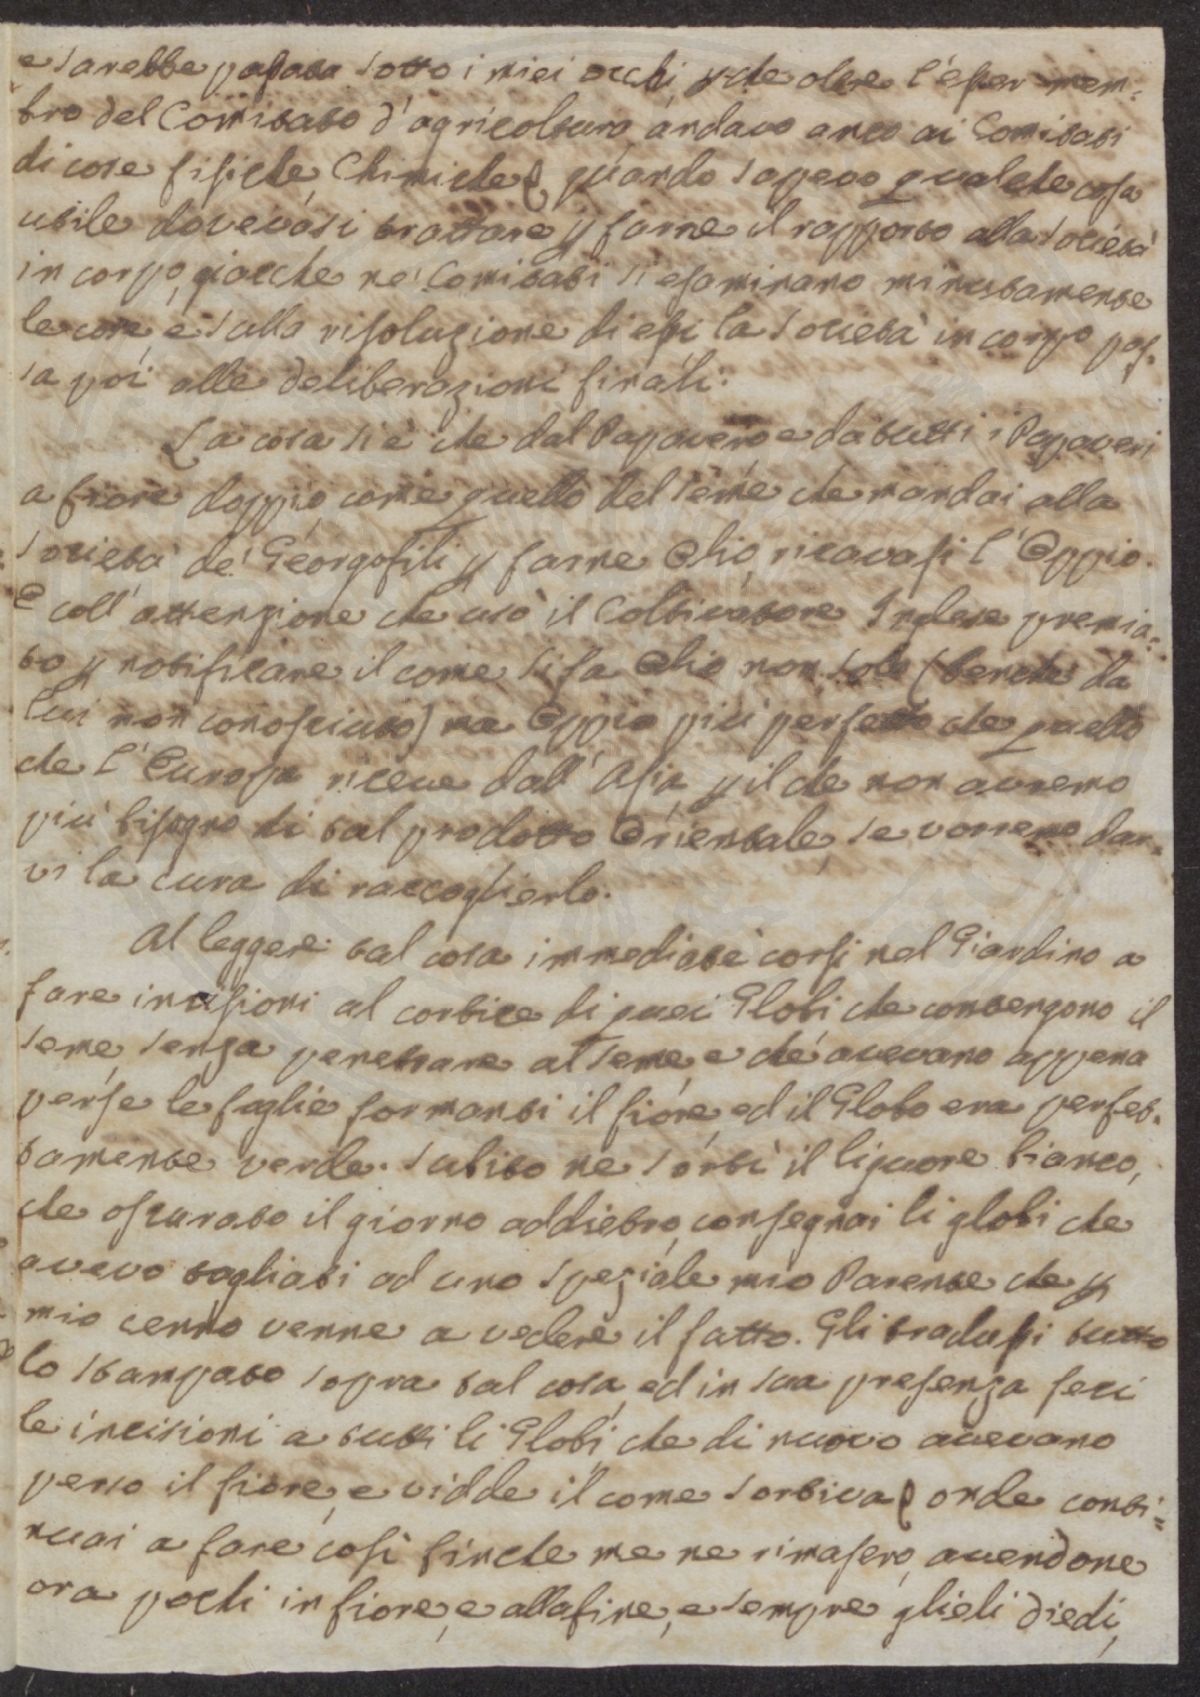 e sarebbe passata sotto i miei occhi, p che oltre l'esser mem:
bro del Comitato d'agricoltura, andavo anco ai Comitati
di cose fisiche, Chimiche, quando sapevo qualche cosa
utile dovevasi trattare p farne il rapporto alla Società
in corpo, giacche ne' Comitati si esaminano minutamente
le cose e sulla risoluzione di essi la Società in corpo pas:
sa poi alle deliberazioni finali.
La cosa si è che dal Papavero, e da tutti i Papaveri
a fiore doppio, come quello del seme che mandai alla
Società de' Georgofili p farne Olio, ricavasi l'Oppio.
E coll' attenzione che usò il Coltivatore Inglese premia:
to p notificare il come si fa Olio non solo (benche da
lui non conosciuto) ma Oppio più perfetto che quello
che l'Europa riceve dall' Asia, p il che non avremo
più bisogno di tal prodotto Orientale, se vorremo dar:
vi la cura di raccoglierlo.
Al leggere tal cosa immediatè corsi nel Giardino a
fare incisioni al cortice di quei Globi che contengono il
seme, senza penetrare al seme, e che avevano appena
perse le foglie formanti il fiore, ed il Globo era perfet:
tamente verde. Subito ne sortì il liquore bianco,
che oscurato il giorno addietro, consegnai li globi che
avevo tagliati ad uno Speziale mio Parente che p
mio cenno venne a vedere il fatto. Gli tradussi tutto
lo stampato sopra tal cosa, ed in sua presenza feci
le incisioni a tutti li Globi, che di nuovo avevano
perso il fiore, e vidde il come sortiva, onde conti:
nuai a fare così finche me ne rimasero, avendone
ora pochi in fiore, e alla fine, e sempre glieli diedi,